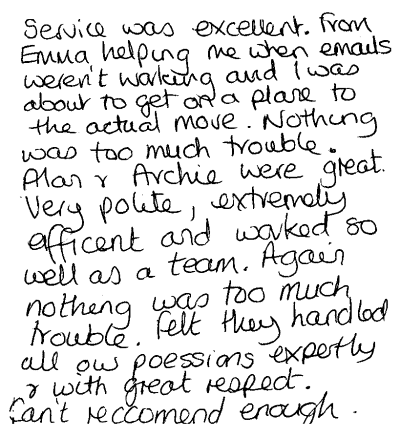 Service was excellent. From
Emma helping me when emails
weren't working and I was
about to get on a plane to
the actual move. Nothing
was too much trouble.
Alan & Archie were great.
Very polite, extremely
efficent and worked so
well as a team. Again
nothing was too much
trouble. Felt they handled
all our poessions expertly
& with great respect.
Can't reccomend enough.